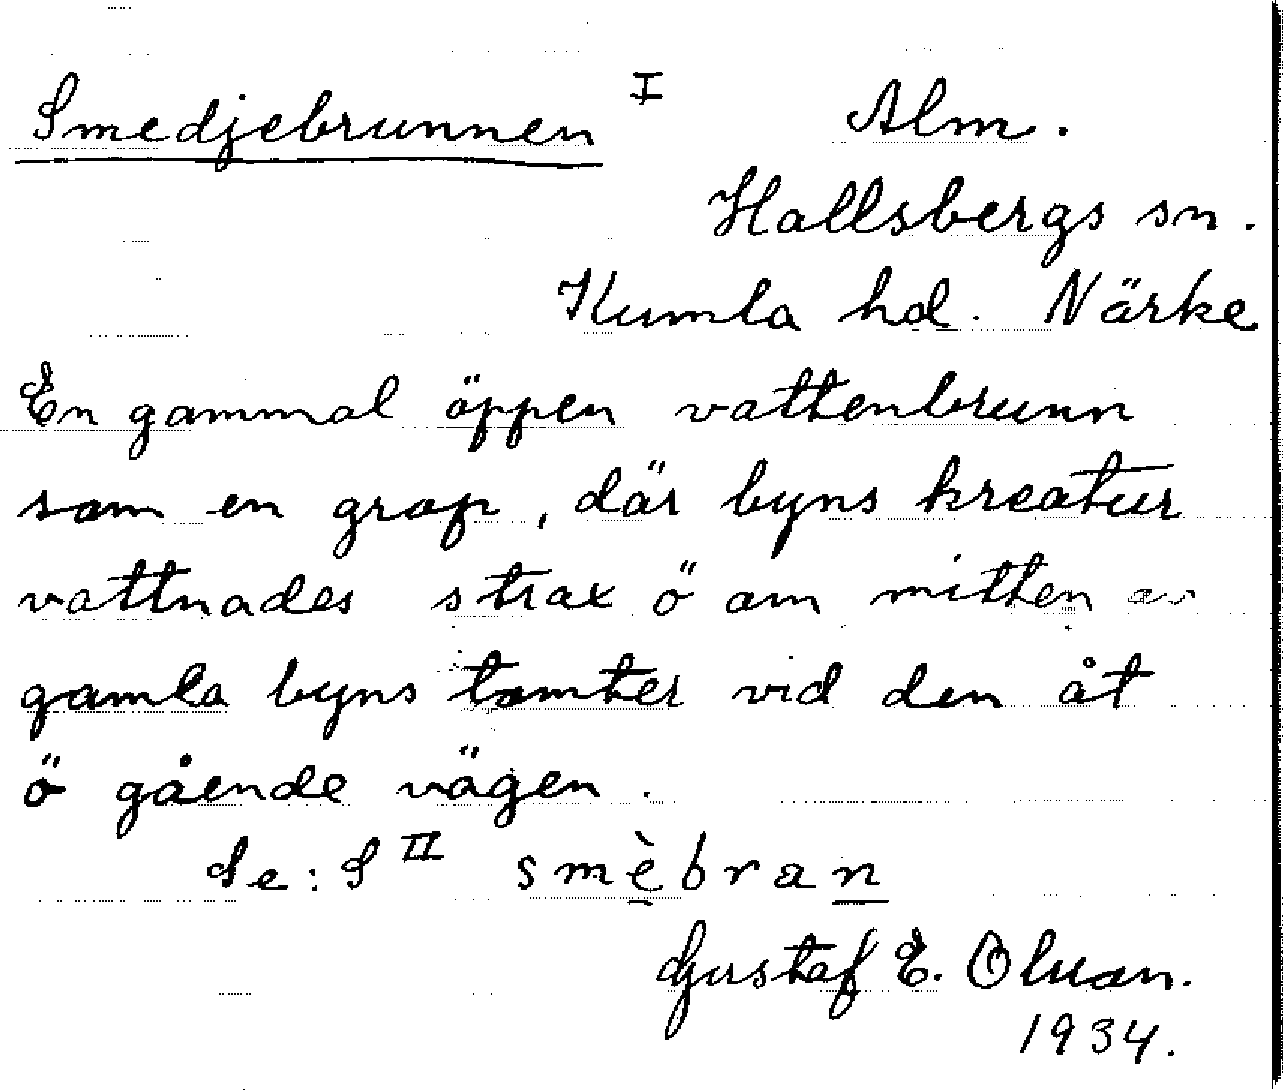 Smedjebrunnen I Alm.
Hallsbergs sn.
Kumla hd. Närke
En gammal öppen vattenbrunn
som en grop, där byns kreatur
vattnades strax ö om mitten av
gamla byns tomter vid den åt
ö gående vägen.
Se: S II smèbran
Gustaf E.
1934.